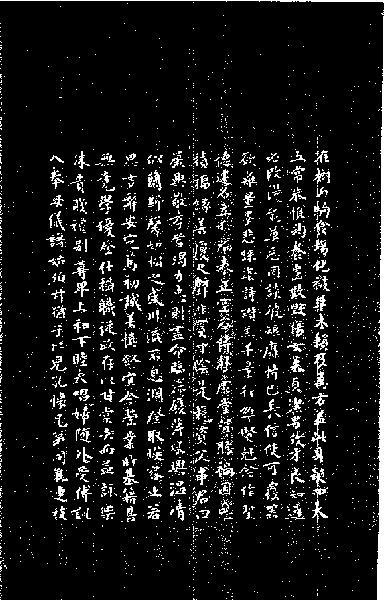 在樹白駒食場化被草木賴及萬方蓋此身髮四大
五常恭惟鞠養豈敢毀傷女慕貞潔男效才良知過
必改得能莫忘罔談彼短靡恃己長信使可覆器
欲難量墨悲絲染詩讚羔羊景行維賢克念作聖
德建名立形端表正空谷傳聲虛堂習聽禍因惡
積福緣善慶尺璧非寶寸陰是競資父事君曰
嚴與敬孝當竭力忠則盡命臨深履薄夙興溫清
似蘭斯馨如松之盛川流不息淵澄取映容止若
思言辭安定篤初誠美慎終宜令榮業所基籍甚
無竟學優登仕攝職從政存以甘棠去而益詠樂
殊貴賤禮別尊卑上和下睦夫唱婦隨外受傅訓
入奉母儀諸姑伯叔猶子比兒孔懷兄弟同氣連枝